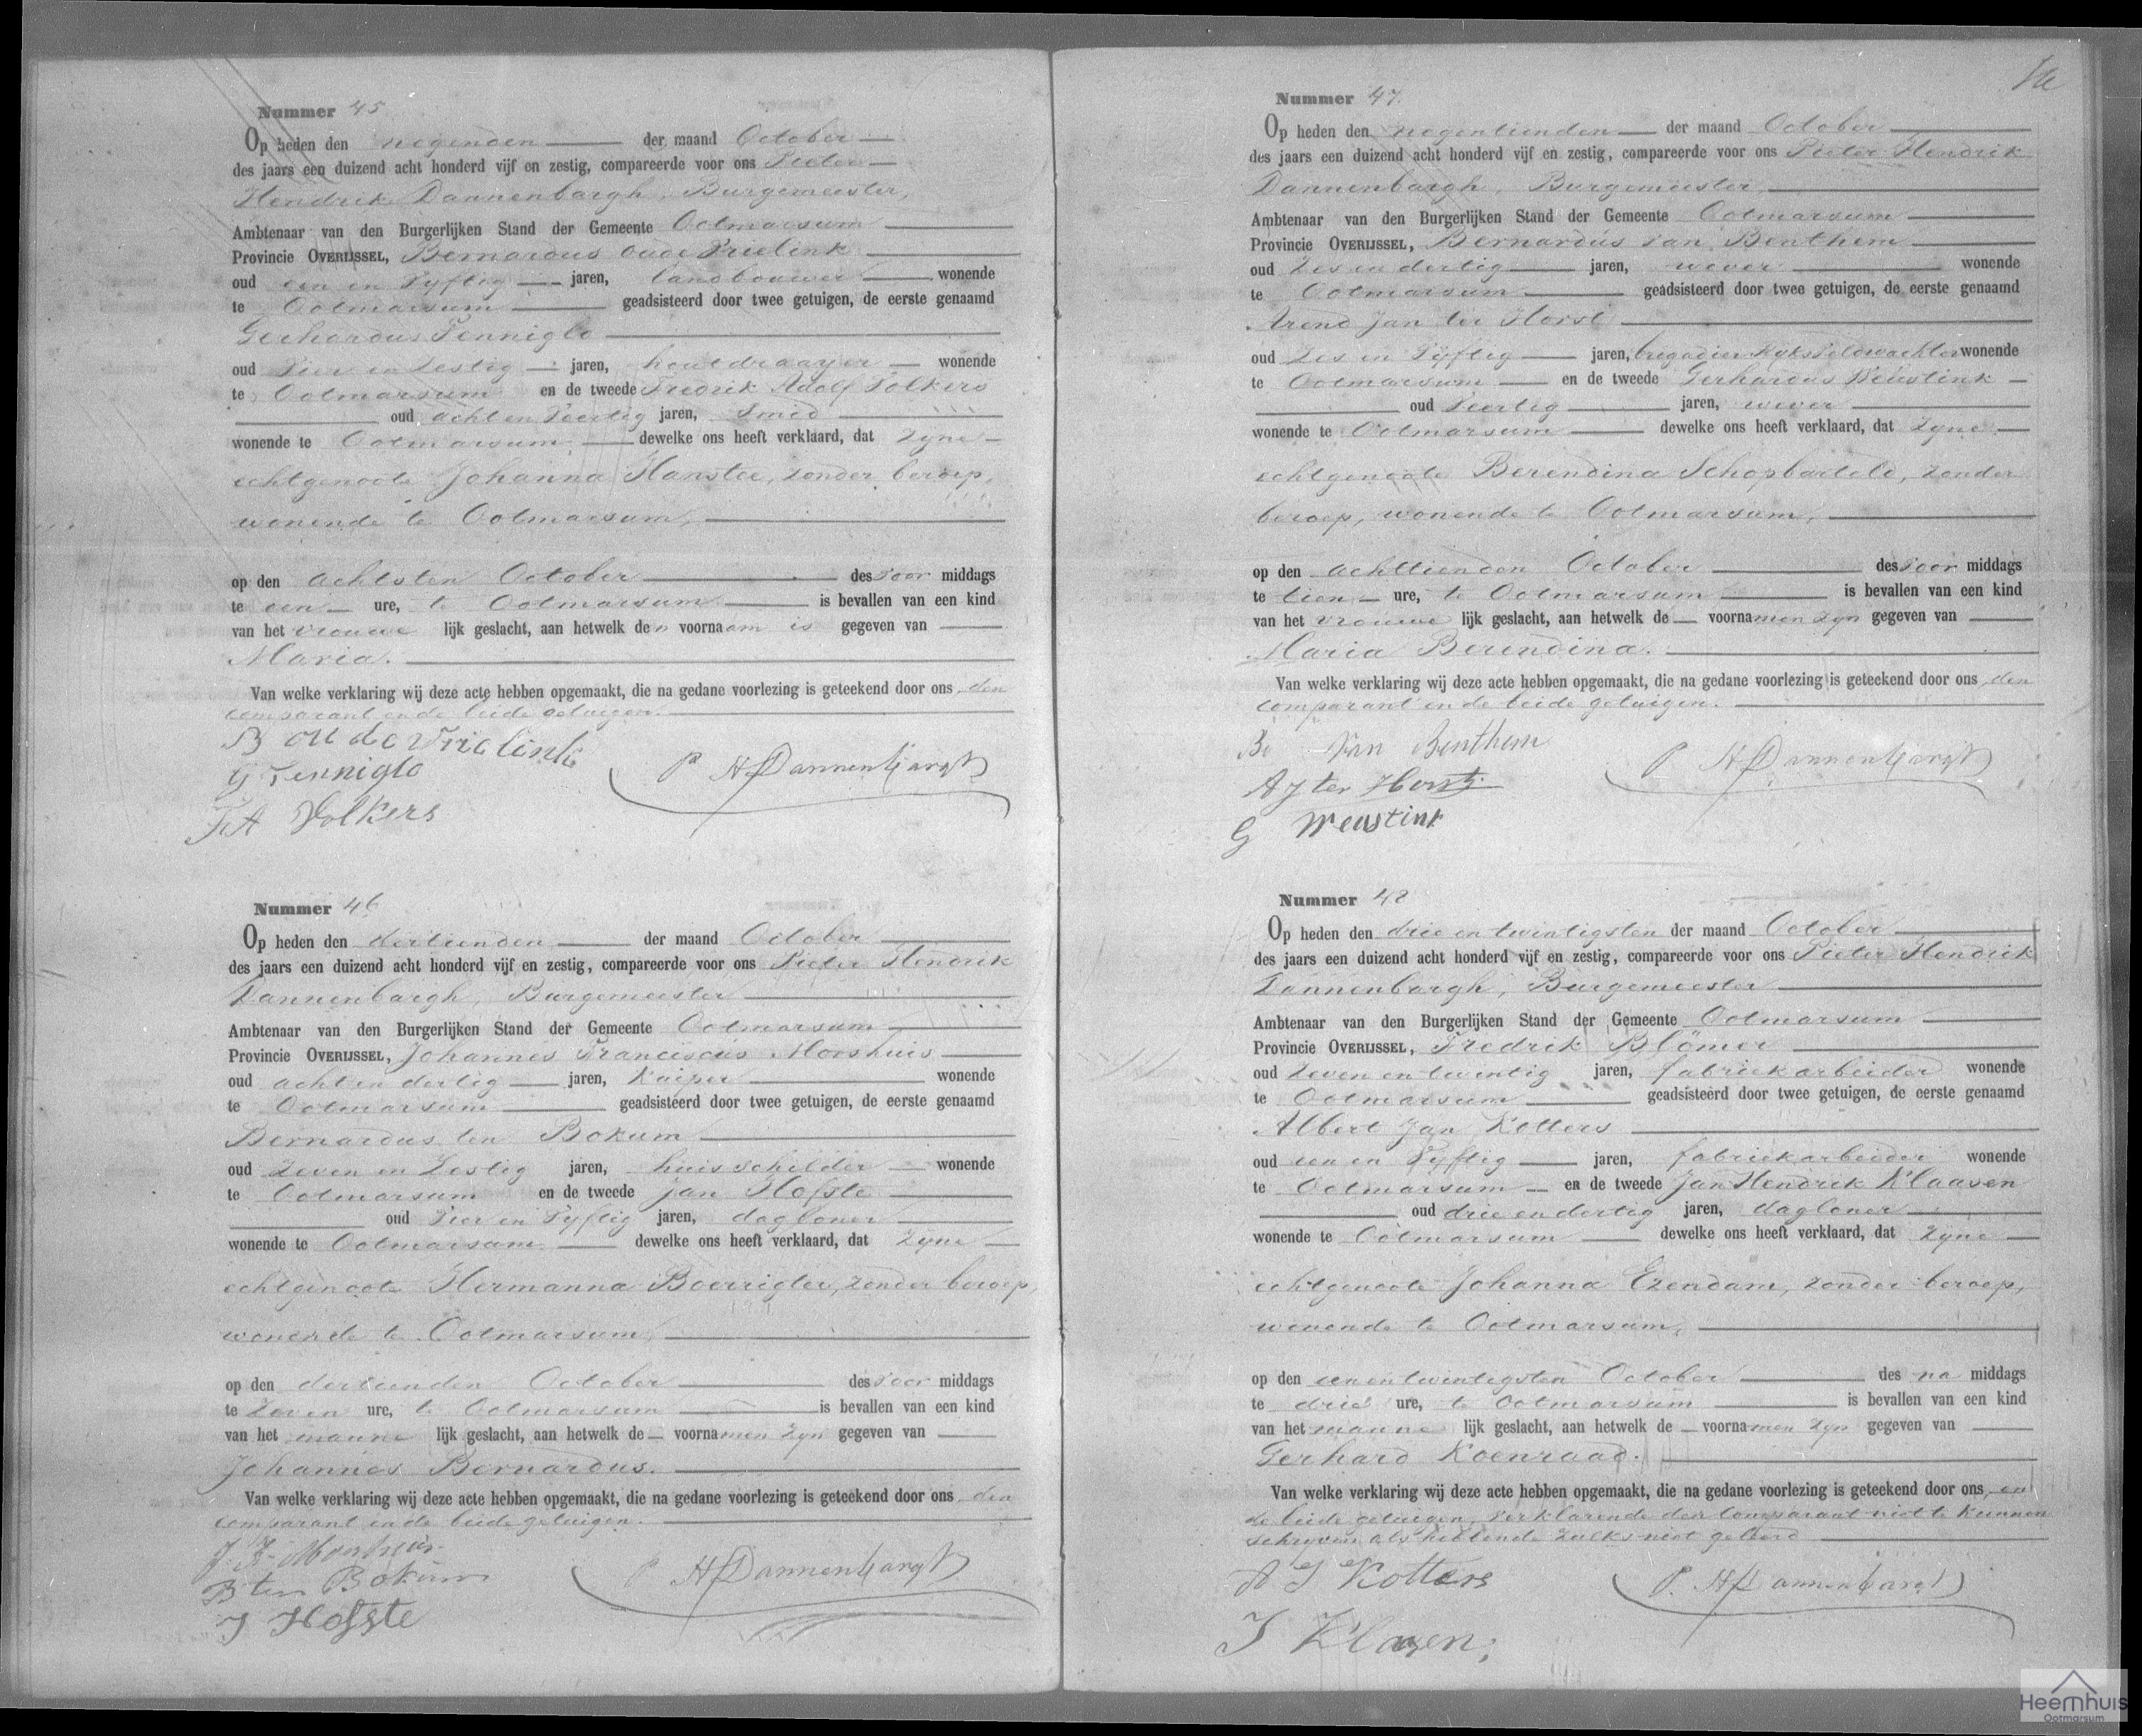 Nummer 45
Op heden den negenden der maand October
des jaars een duizend acht honderd vijf en zestig, compareerde voor ons Pieter
Hendrik Dannenbargh, Burgemeester,
Ambtenaar van den Burgerlijken Stand der Gemeente Ootmarsum
Provincie OVERIJSSEL, Bernardus oude Vrielink
oud een en vyftig jaren, landbouwer wonende
te Ootmarsum geadsisteerd door twee getuigen, de eerste genaamd
Gerhardus Tenniglo
oud vier en zestig jaren, houtdraayer wonende
te Ootmarsum en de tweede Fredrik Adolf Volkers
oud acht en veertig jaren, smid
wonende te Ootmarsum dewelke ons heeft verklaard, dat zyne
echtgenoote Johanna Hanstee, zonder beroep,
wonende te Ootmarsum,
op den achtsten October des voor middags
te een ure, te Ootmarsum is bevallen van een kind
van het vrouwe lijk geslacht, aan hetwelk den voornaam is gegeven van
Maria.
Van welke verklaring wij deze acte hebben opgemaakt, die na gedane voorlezing is geteekend door ons, den
comparant en de beide getuigen.
B oude Vrielink
G Tenniglo
P H Dannenbargh
F A Volkers
Nummer 46
Op heden den dertienden der maand October
des jaars een duizend acht honderd vijf en zestig, compareerde voor ons Pieter Hendrik
Dannenbargh, Burgemeester
Ambtenaar van den Burgerlijken Stand der Gemeente Ootmarsum
Provincie OVERIJSSEL, Johannes Franciscus Morshuis
oud acht en dertig jaren, kuiper wonende
te Ootmarsum geadsisteerd door twee getuigen, de eerste genaamd
Bernardus ten Bokum
oud zeven en zestig jaren, huisschilder wonende
te Ootmarsum en de tweede Jan Hofste
oud vier en vyftig jaren, dagloner
wonende te Ootmarsum dewelke ons heeft verklaard, dat zyne
echtgenoote Hermanna Boerrigter, zonder beroep,
wonende te Ootmarsum,
op den dertienden October des voor middags
te zeven ure, te Ootmarsum is bevallen van een kind
van het manne lijk geslacht, aan hetwelk de voornamen zyn gegeven van
Johannes Bernardus.
Van welke verklaring wij deze acte hebben opgemaakt, die na gedane voorlezing is geteekend door ons, den
comparant en de beide getuigen.
J. F. Morshuis
B ten Bokum
P H Dannenbargh
J Hofste
Nummer 47.
Op heden den negentienden der maand October
des jaars een duizend acht honderd vijf en zestig, compareerde voor ons Pieter Hendrik
Dannenbargh, Burgemeester,
Ambtenaar van den Burgerlijken Stand der Gemeente Ootmarsum
Provincie OVERIJSSEL, Bernardus van Benthem
oud zes en dertig jaren, wever wonende
te Ootmarsum geadsisteerd door twee getuigen, de eerste genaamd
Arend Jan ter Horst
oud zes en vyftig jaren, brigadier Ryksveldwachter wonende
te Ootmarsum en de tweede Gerhardus Weustink
oud veertig jaren, wever
wonende te Ootmarsum dewelke ons heeft verklaard, dat zyne
echtgenoote Berendina Schopbarteld, zonder
beroep, wonende te Ootmarsum,
op den achttienden October des voor middags
te tien ure, te Ootmarsum is bevallen van een kind
van het vrouwe lijk geslacht, aan hetwelk de voornamen zyn gegeven van
Maria Berendina.
Van welke verklaring wij deze acte hebben opgemaakt, die na gedane voorlezing is geteekend door ons, den
comparant en de beide getuigen.
Be van Benthem
P H Dannenbargh
A J ter Horst
G Weustink
Nummer 48
Op heden den drie en twintigsten der maand October
des jaars een duizend acht honderd vijf en zestig, compareerde voor ons Pieter Hendrik
Dannenbargh, Burgemeester
Ambtenaar van den Burgerlijken Stand der Gemeente Ootmarsum
Provincie OVERIJSSEL, Fredrik Blömer
oud zeven en twintig jaren, fabriekarbeider wonende
te Ootmarsum geadsisteerd door twee getuigen, de eerste genaamd
Albert Jan Kotters
oud een en vyftig jaren, fabriekarbeider wonende
te Ootmarsum en de tweede Jan Hendrik Klaasen
oud drie en dertig jaren, dagloner
wonende te Ootmarsum dewelke ons heeft verklaard, dat zyne
echtgenoote Johanna Ezendam, zonder beroep,
wonende te Ootmarsum,
op den een en twintigsten October des na middags
te drie ure, te Ootmarsum is bevallen van een kind
van het manne lijk geslacht, aan hetwelk de voornamen zyn gegeven van
Gerhard Koenraad.
Van welke verklaring wij deze acte hebben opgemaakt, die na gedane voorlezing is geteekend door ons, en
de beide getuigen, verklarende den comparant niet te kunnen
schryven als hebbende zulks niet geleerd
A J Kotters
P. H Dannenbargh
J Klaasen
Heemhuis
Ootmarsum